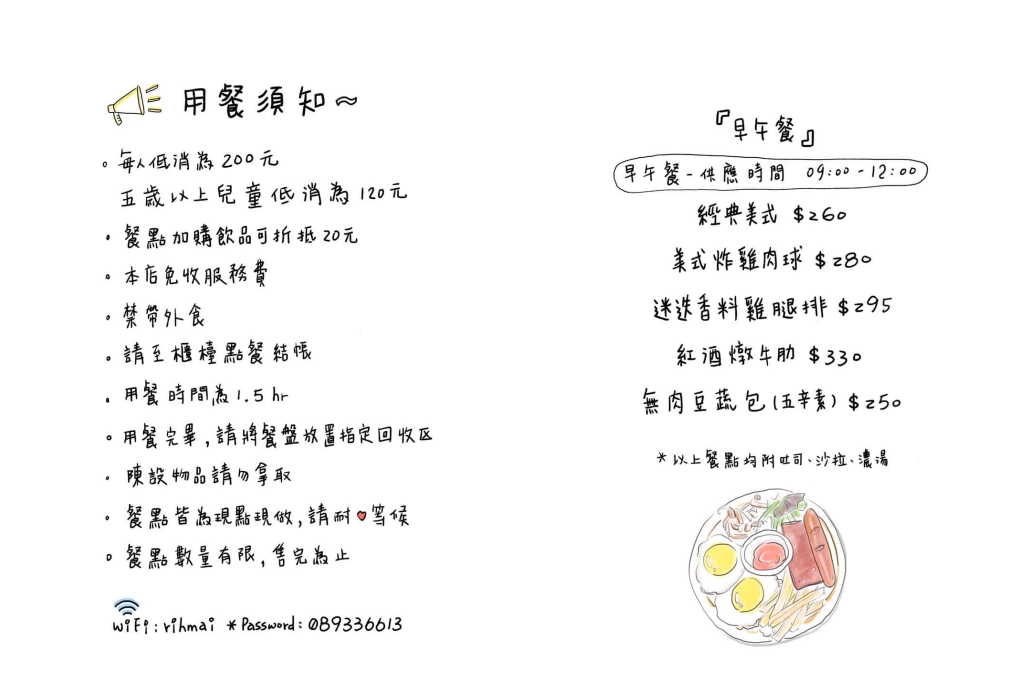 用餐須知~
。每人低消為200元
五歲以上兒童低消為120元
・餐點加購飲品可折抵20元
・本店免收服務費
。禁帶外食
。請至櫃檯點餐結帳
。用餐時間為1.5hr
。用餐完畢,請將餐盤放置指定回收區
。陳設物品請勿拿取
。餐點皆為現點現做,請耐♥等候
。餐點數量有限,售完為止
wiFi:rihmai *Password:089336613
『早午餐』
早午餐-供應時間 09:00-12:00
經典美式 $260
美式炸雞肉球 $280
迷迭香料雞腿排 $295
紅酒燉牛肋 $330
無肉豆蔬包(五辛素) $250
*以上餐點均附吐司、沙拉、濃湯